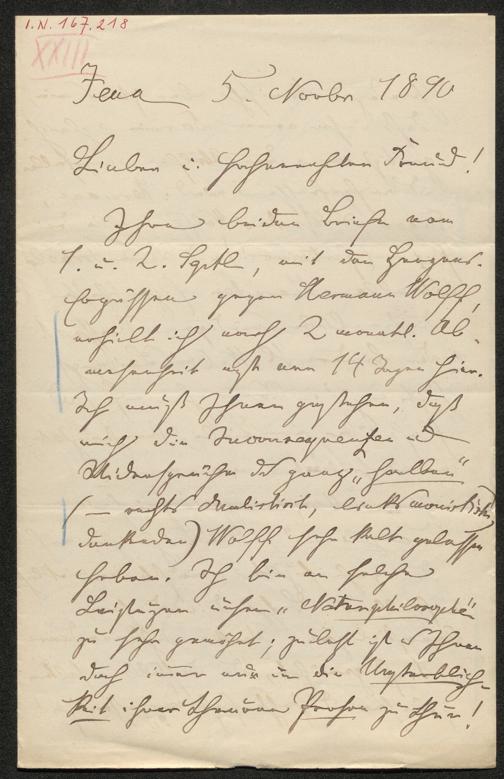 I.N. 167.218
XXIII
Jena 5. Novbr 1890
Lieber u. hochverehrter Freund!
Ihre beiden Briefe vom
1. u. 2. Septb, mit den Herzens-
Ergüssen gegen Hermann Wolff,
erhielt ich nach 2 monatl. Ab-
wesenheit erst vor 14 Tagen hier.
Ich muß Ihnen gestehen, daß
mich die Inconsequenzen u
Widersprüche des ganz „halben“
(– rechts dualistisch, links monistisch
denkenden) Wolff sehr kalt gelassen
haben. Ich bin an solche
Leistungen unsrer „Naturphilosophie“
zu sehr gewöhnt; zuletzt ist es Ihnen
doch immer nur um die Unsterblich-
keit ihrer theuren Person zu thun!